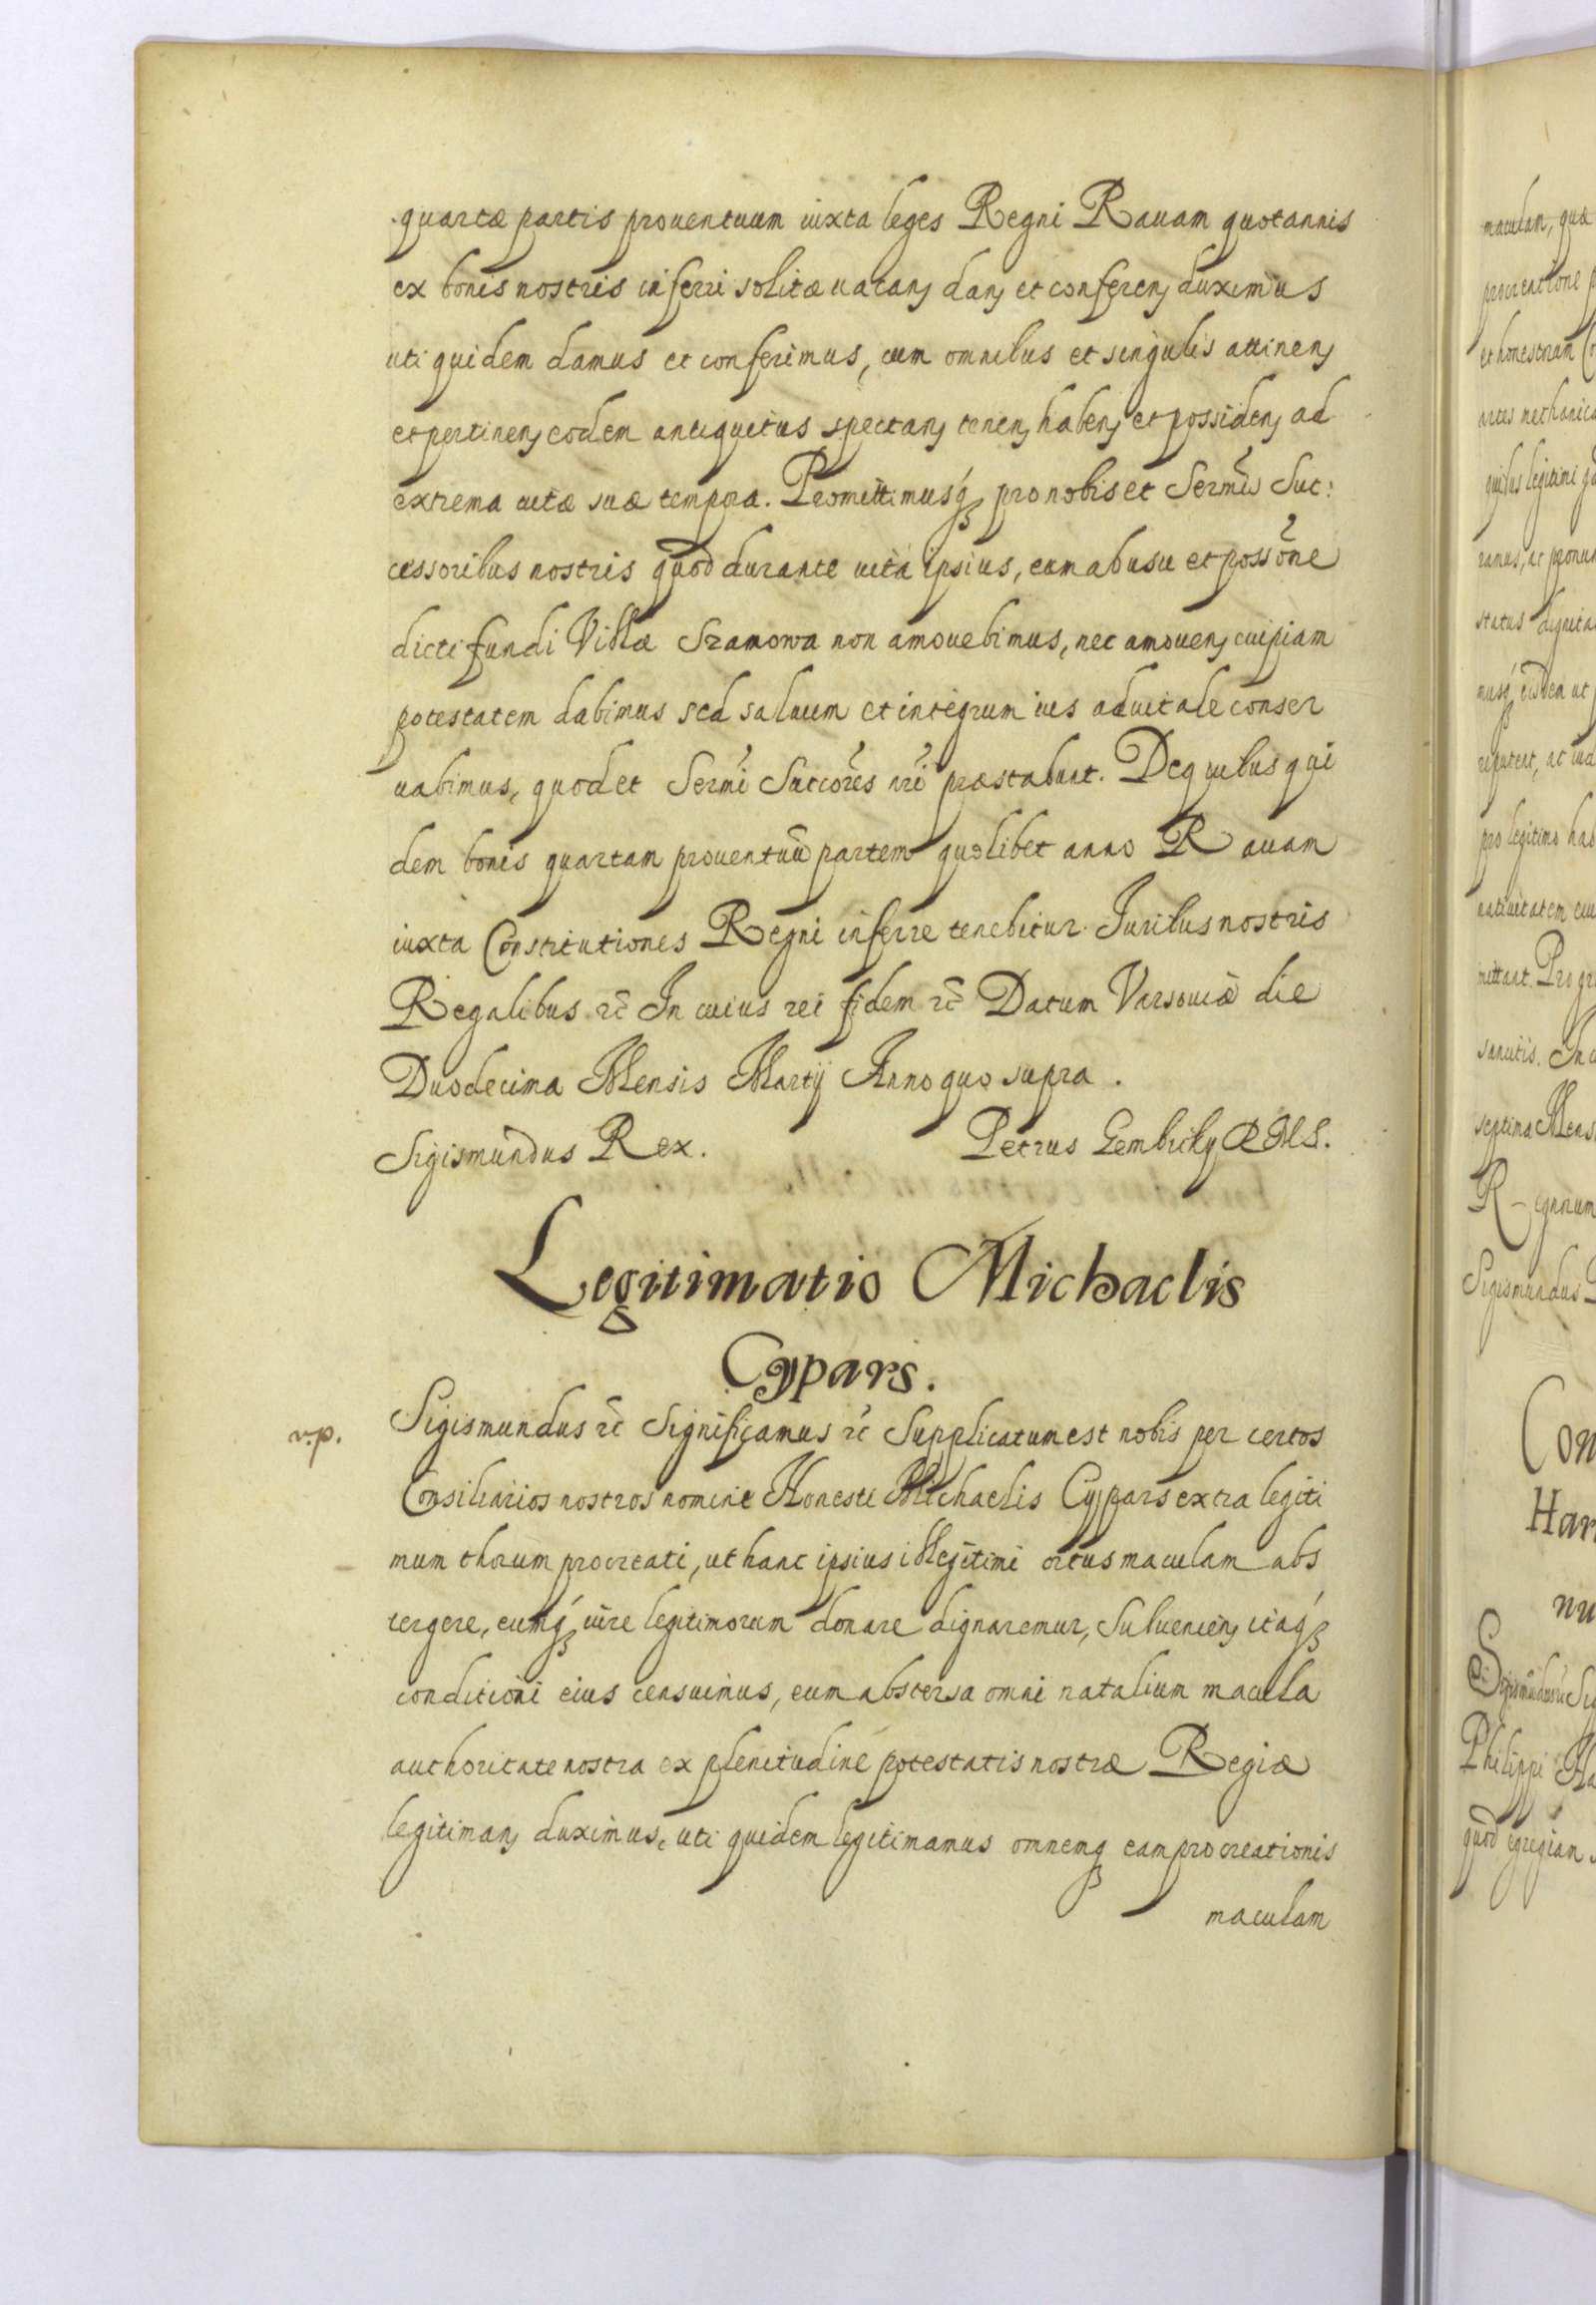 quartæ partis prouentuum iuxta leges Regni Rauam quotannis
ex bonis nostris inferri solitæ uacanꝫ danꝫ et conferenꝫ duximus
uti quidem damus et conferimus, cum omnibus et singulis attinenꝫ
et pertinenꝫ eodem antiquitus spectanꝫ tenenꝫ habenꝫ et possidenꝫ ad
extrema uitæ suæ tempora. Promittimusqꝫ pro nobis et Sermis Suc:
cessoribus nostris quod durante uita ipsius, eum ab usu et possone
dicti fundi Villæ Szamowa non amouebimus, nec amouenꝫ cuipiam
potestatem dabimus sed saluum et integrum ius aduitale conser
uabimus, quod et Sermi Succores nri præstabunt. De quibus qui
dem bonis quartam prouentuũ partem quolibet anno Rauam
iuxta Constitutiones Regni inferre tenebitur. Juribus nostris
Regalibus ꝛc̃ In cuius rei fidem ꝛc̃ Datum Varsouiæ die
Duodecima Mensis Martij Anno quo supra.
Sigismundus Rex. Petrus Gembicky R M S.
Legitimatio Michaelis
Cypars.
v.p. Sigismundus ꝛc̃ Significamus ꝛc̃ Supplicatum est nobis per certos
Consiliarios nostros nomine Honesti Michaelis Cypars extra legiti
mum thorum procreati, ut hanc ipsius illegitimi ortus maculam abs
tergere, eumqꝫ iure legitimorum donare dignaremur, Subuenienꝫ itaqꝫ
conditioni eius censuimus, eum abstersa omni natalium macula
authoritate nostra ex plenitudine potestatis nostræ Regiæ
legitimanꝫ duximus, uti quidem legitimamus omnemqꝫ eam procreationis
maculam